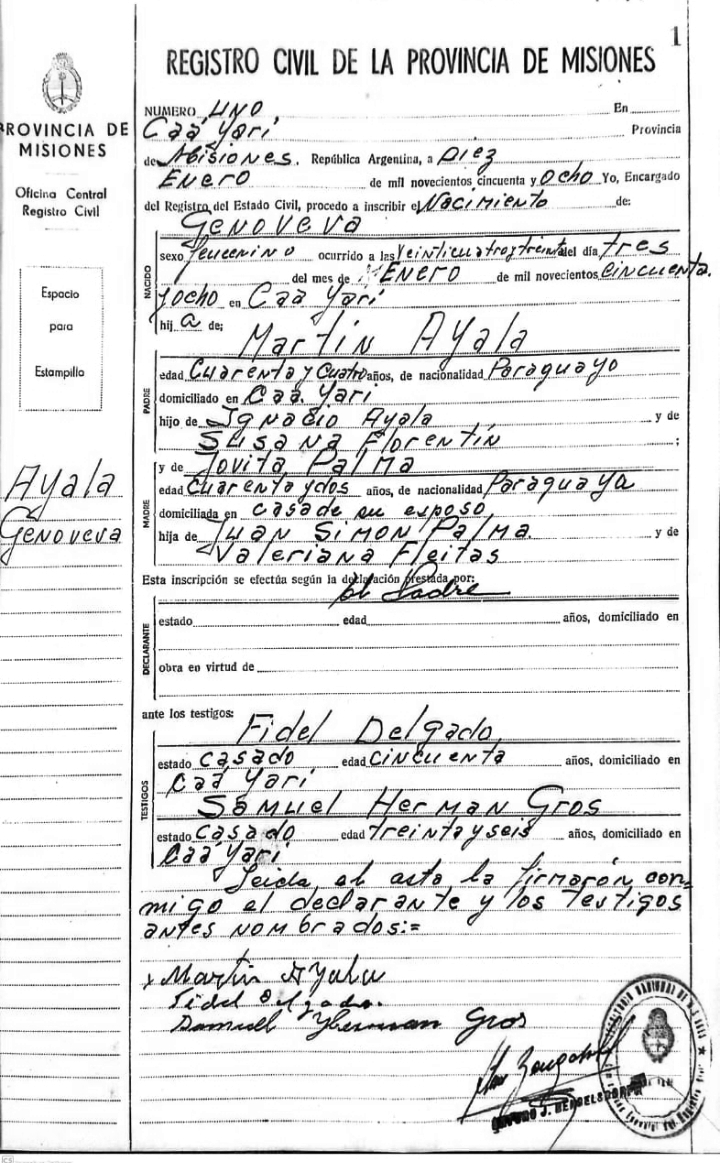 1
REGISTRO CIVIL DE LA PROVINCIA DE MISIONES
PROVINCIA DE
MISIONES
Oficina Central
Registro Civil
Espacio
para
Estampilla
Ayala
Genoveva
NUMERO UNO En
Caá Yarí Provincia
de Misiones. República Argentina, a Diez
Enero de mil novecientos cincuenta y Ocho Yo, Encargado
del Registro del Estado Civil, procedo a inscribir el Nacimiento de:
Genoveva
NACIDO
sexo femenino ocurrido a las Veinticuatro y treinta del día tres
del mes de Enero de mil novecientos Cincuenta.
y ocho en Caá Yarí
hij a de;
Martín Ayala
PADRE
edad Cuarenta y Cuatro años, de nacionalidad Paraguayo
domiciliado en Caá Yarí
hijo de Ignacio Ayala y de
Susana Florentín ;
y de Jovita Palma
MADRE
edad Cuarenta y dos años, de nacionalidad Paraguaya
domiciliada en casa de su esposo
hija de Juan Simon Palma. y de
Valeriana Fleitas
Esta inscripción se efectúa según la declaración prestada por:
el Padre
DECLARANTE
estado edad años, domiciliado en
obra en virtud de
ante los testigos:
Fidel Delgado
TESTIGOS
estado Casado edad Cincuenta años, domiciliado en
Caá Yarí
Samuel Herman Gros
estado Casado edad treinta y seis años, domiciliado en
Caá Yarí
Leida el acta la firmarón con-
migo el declarante y los testigos
antes nombrados:=
x Martin Ayala
Fidel Delgado.
Samuel Herman Gros